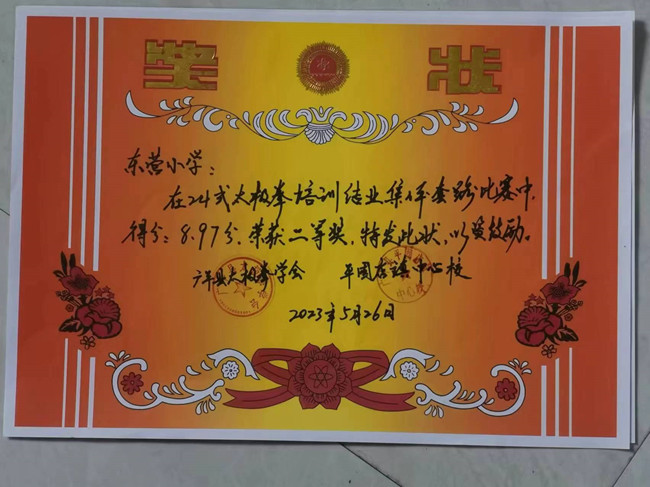 奖 状
东营小学：
在24式太极拳培训结业集体套路比赛中，
得分：8.97分，荣获二等奖，特发此状，以资鼓励。
广平县太极拳学会 平固店镇中心校
2023年5月26日